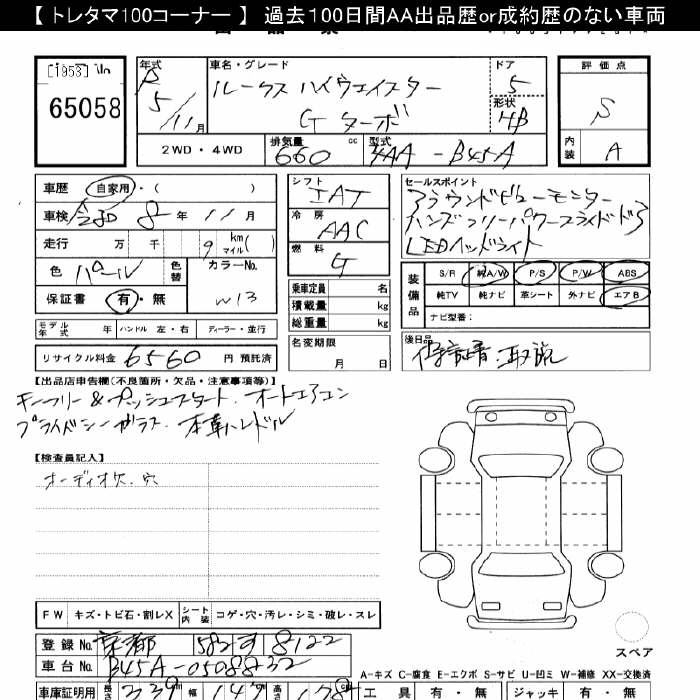 【 トレタマ100コーナー 】 過去100日間AA出品歴or成約歴のない車両
65058
年式 R 5 / 11 月
車名・グレード ルークス ハイウェイスター
G ターボ
ドア 5
形状 4B
2WD ・ 4WD 排気量 660 cc 型式 4AA - B45A
評価点 S
内装 A
車歴 自家用 ・ ( )
車検 令和 8 年 11 月
走行 万 千 9 km マイル ( )
色 パール 色替 カラーNo. W13
保証書 有 ・ 無
モデル年式 年 ハンドル 左・右 ディーラー・並行
リサイクル料金 6560 円 預託済
シフト IAT
冷房 AAC
燃料 G
乗車定員 名
積載量 kg
総重量 kg
名変期限 月 日
セールスポイント
アラウンドビューモニター
ハンズフリーパワースライドドア
LEDヘッドライト
装備品 S/R 純A/W P/S P/W ABS
純TV 純ナビ 革シート 外ナビ エアB
ナビ型番:
後日品 保証書 取説
【出品店申告欄(不良箇所・欠品・注意事項等)】
キーフリー & プッシュスタート. オートエアコン
プライバシーガラス. 本革ハンドル
【検査員記入】
オーディオケ. 穴
FW キズ・トビ石・割レX シート内装 コゲ・穴・汚レ・シミ・破レ・スレ
登録No. 京都 582 す 8122
車台No. B45A-0508232
車庫証明用 長さ 339 幅 147 高さ 178
スペア
A-キズ C-腐食 E-エクボ S-サビ U-凹ミ W-補修 XX-交換済
工具 有・無 ジャッキ 有・無